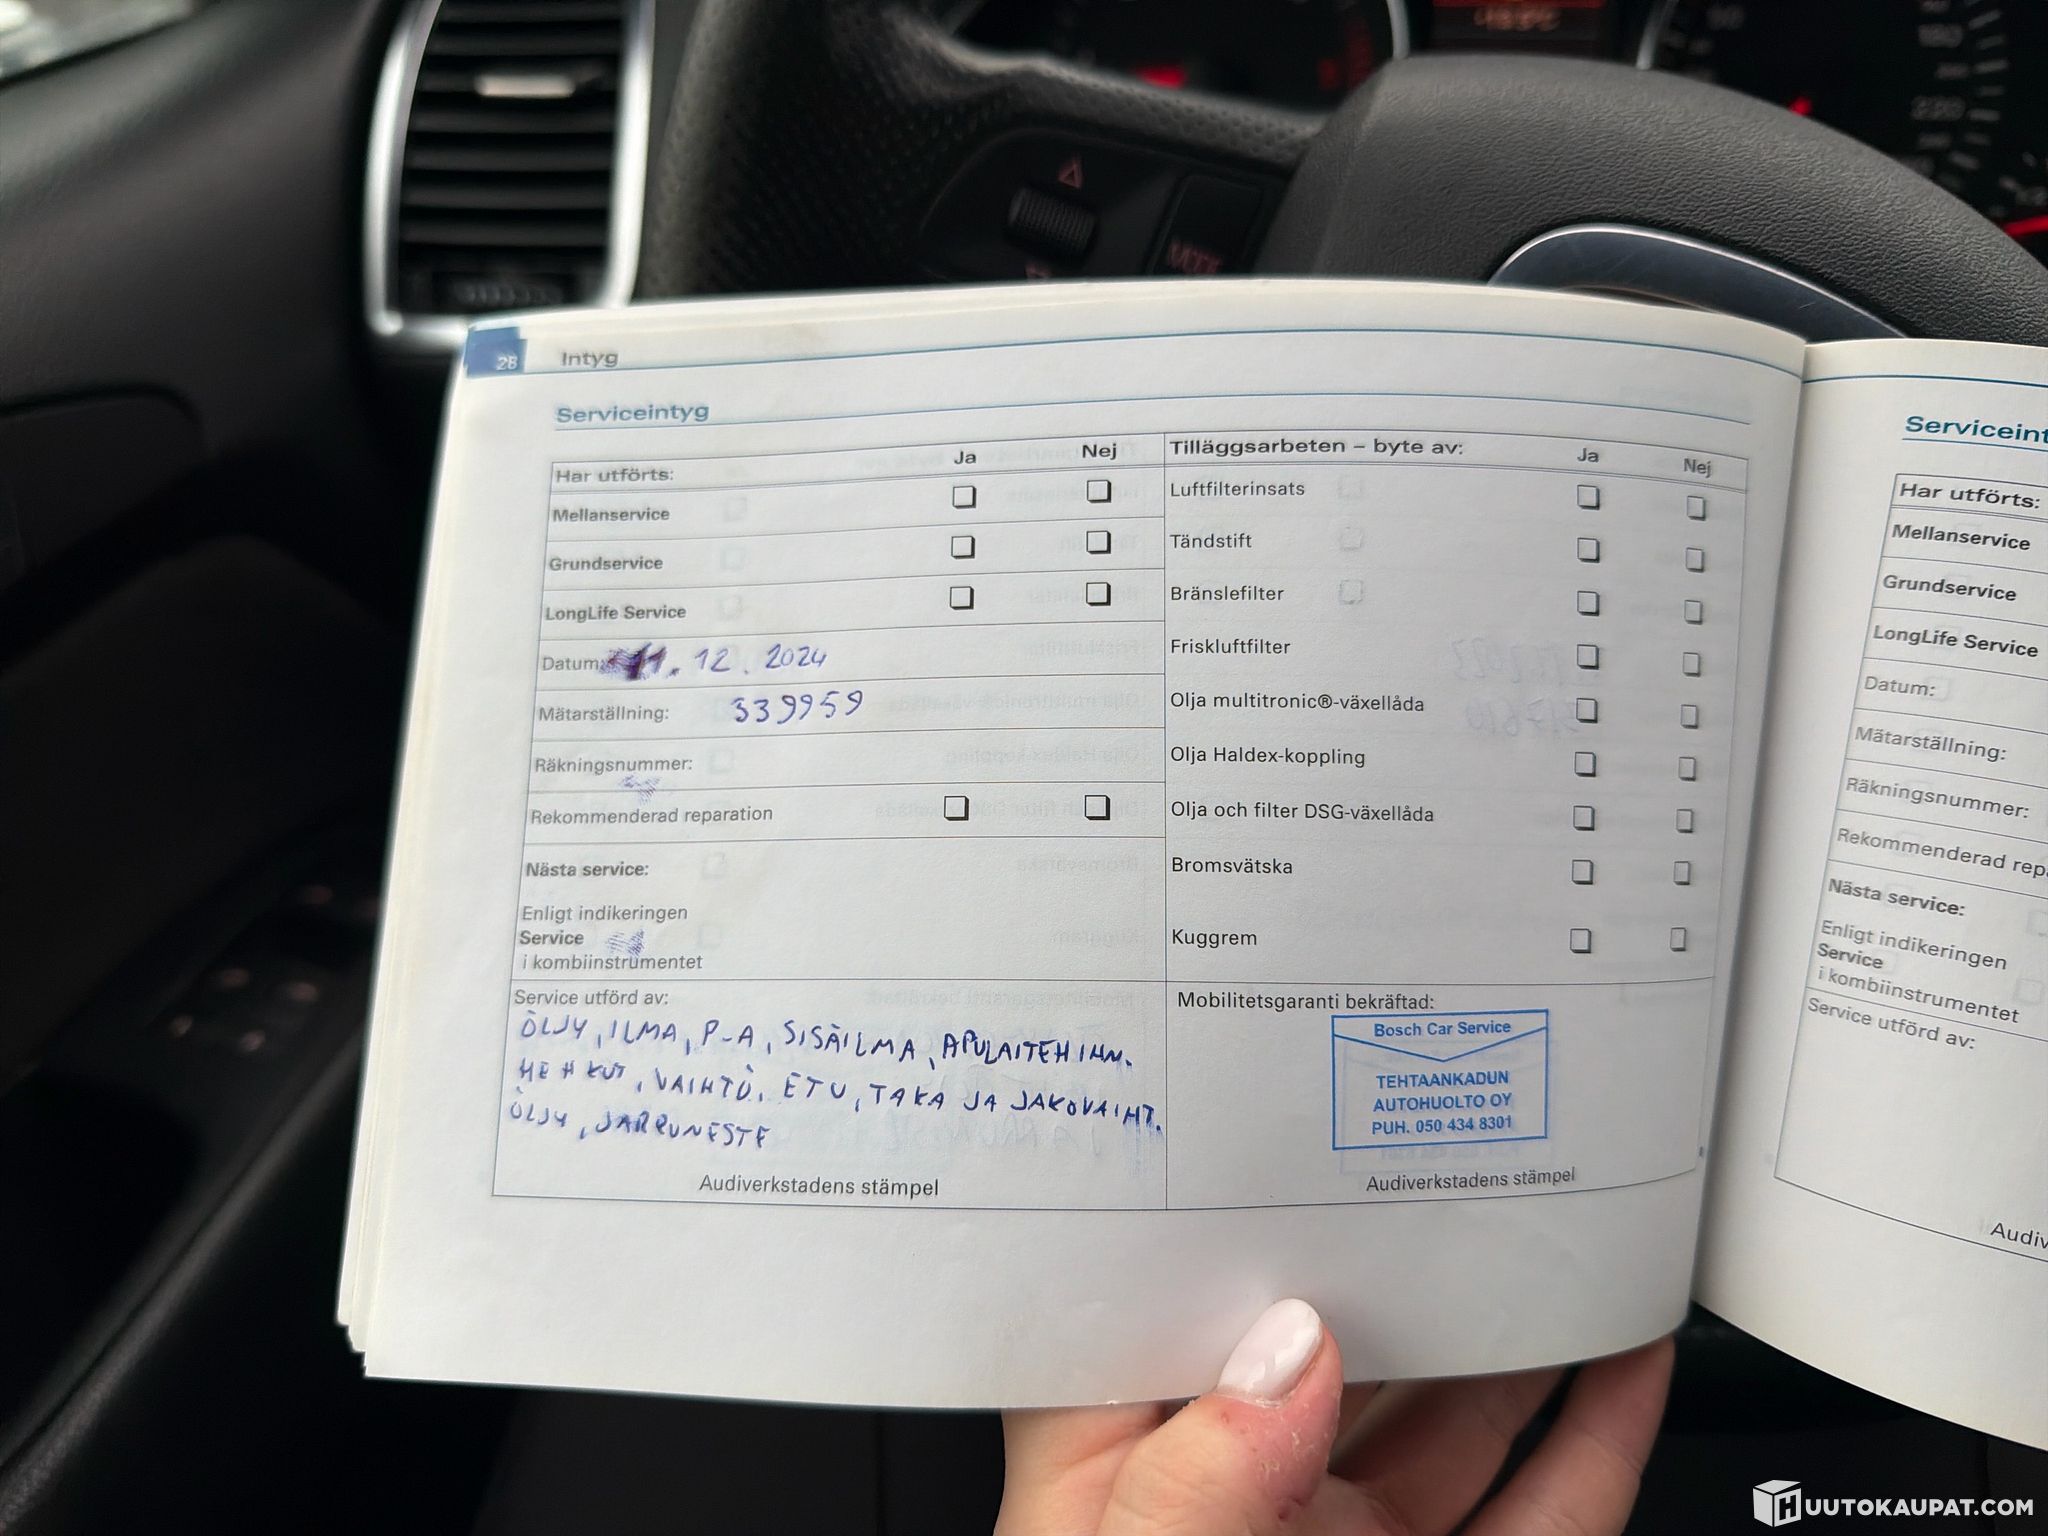 MODE
220
28 Intyg
Serviceintyg
Har utförts: Ja Nej
Mellanservice
Grundservice
LongLife Service
Datum: 12. 2024
Mätarställning: 339959
Räkningsnummer:
Rekommenderad reparation
Nästa service:
Enligt indikeringen
Service
i kombiinstrumentet
Service utförd av:
ÖLJY, ILMA, P-A, SISÄILMA, APULAITEHIHN.
HEHKUT, VAIHTO, ETU, TAKA JA JAKOVAIHT.
ÖLJY, JARRUNESTE
Audiverkstadens stämpel
Tilläggsarbeten – byte av: Ja Nej
Luftfilterinsats
Tändstift
Bränslefilter
Friskluftfilter
Olja multitronic®-växellåda
Olja Haldex-koppling
Olja och filter DSG-växellåda
Bromsvätska
Kuggrem
Mobilitetsgaranti bekräftad:
Bosch Car Service
TEHTAANKADUN
AUTOHUOLTO OY
PUH. 050 434 8301
Audiverkstadens stämpel
Serviceint
Har utförts:
Mellanservice
Grundservice
LongLife Service
Datum:
Mätarställning:
Räkningsnummer:
Rekommenderad rep
Nästa service:
Enligt indikeringen
Service
i kombiinstrumentet
Service utförd av:
Audiv
HUUTOKAUPAT.COM